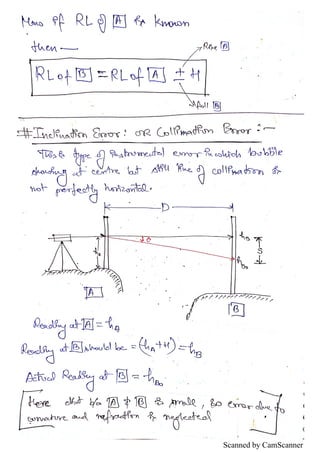 Now if RL of [A] is known
then —
Rise [B]
RL of [B] = RL of [A] ± H
fall [B]
# Inclination Error: OR Collimation Error: —
This is type of Instrumental error in which bubble
showing at centre but still line of collimation is
not perfectly horizontal.
D
hB
S
hB₀
[A]
[B]
Reading at [A] = hA
Reading at [B] should be = (hA + H) = hB
Actual Reading at [B] = hB₀
Here dist b/w [A] & [B] is small, so error due to
curvature and refraction is neglected
Scanned by CamScanner